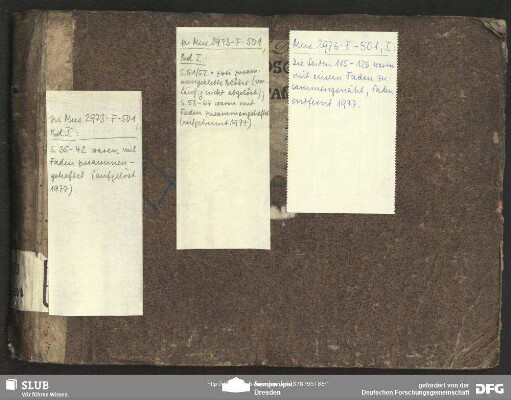 zu Mus. 2973-F-501,
Bd I:
S. 35-42 waren mit
Faden zusammen-
geheftet (aufgelöst
1977)
zu Mus. 2973-F-501,
Bd I:
S. 51/52 = zwei zusam-
mengeklebte Blätter (vor-
läufig nicht abgelöst);
S. 53-64 waren mit
Faden zusammengeheftet
1977).
Mus. 2973-F-501, I:
Die Seiten 115-126 waren
mit einem Faden zu
sammengenäht, Faden
entfernt 1977.
SLUB
Wir führen Wissen.
Dresden
gefördert von der
Deutschen Forschungsgemeinschaft
DFG